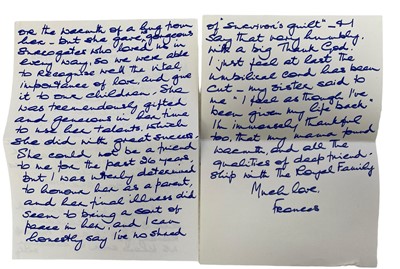 or the warmth of a hug from
her - but she gave gorgeous
surrogates who loved us in
every way, so we were able
to recognise well the vital
importance of love, and give
it to our children. She
was tremendously gifted
and generous in her time
to use her talents, which
she did with great success.
She could not be a friend
to me for the past 30 years,
but I was utterly determined
to honour her as a parent,
and her final illness did
seem to bring a sort of
peace in her, and I can
honestly say I've no shred
of "survivor's guilt" - & I
say that very humbly.
with a big 'Thank God'.
I just feel at last the
umbilical cord has been
cut - my sister said to
me "I feel as though I've
been given my life back".
I'm immensely thankful
too, that my mama found
warmth and all the
qualities of deep friend-
ship with the Royal Family
Much love,
Frances